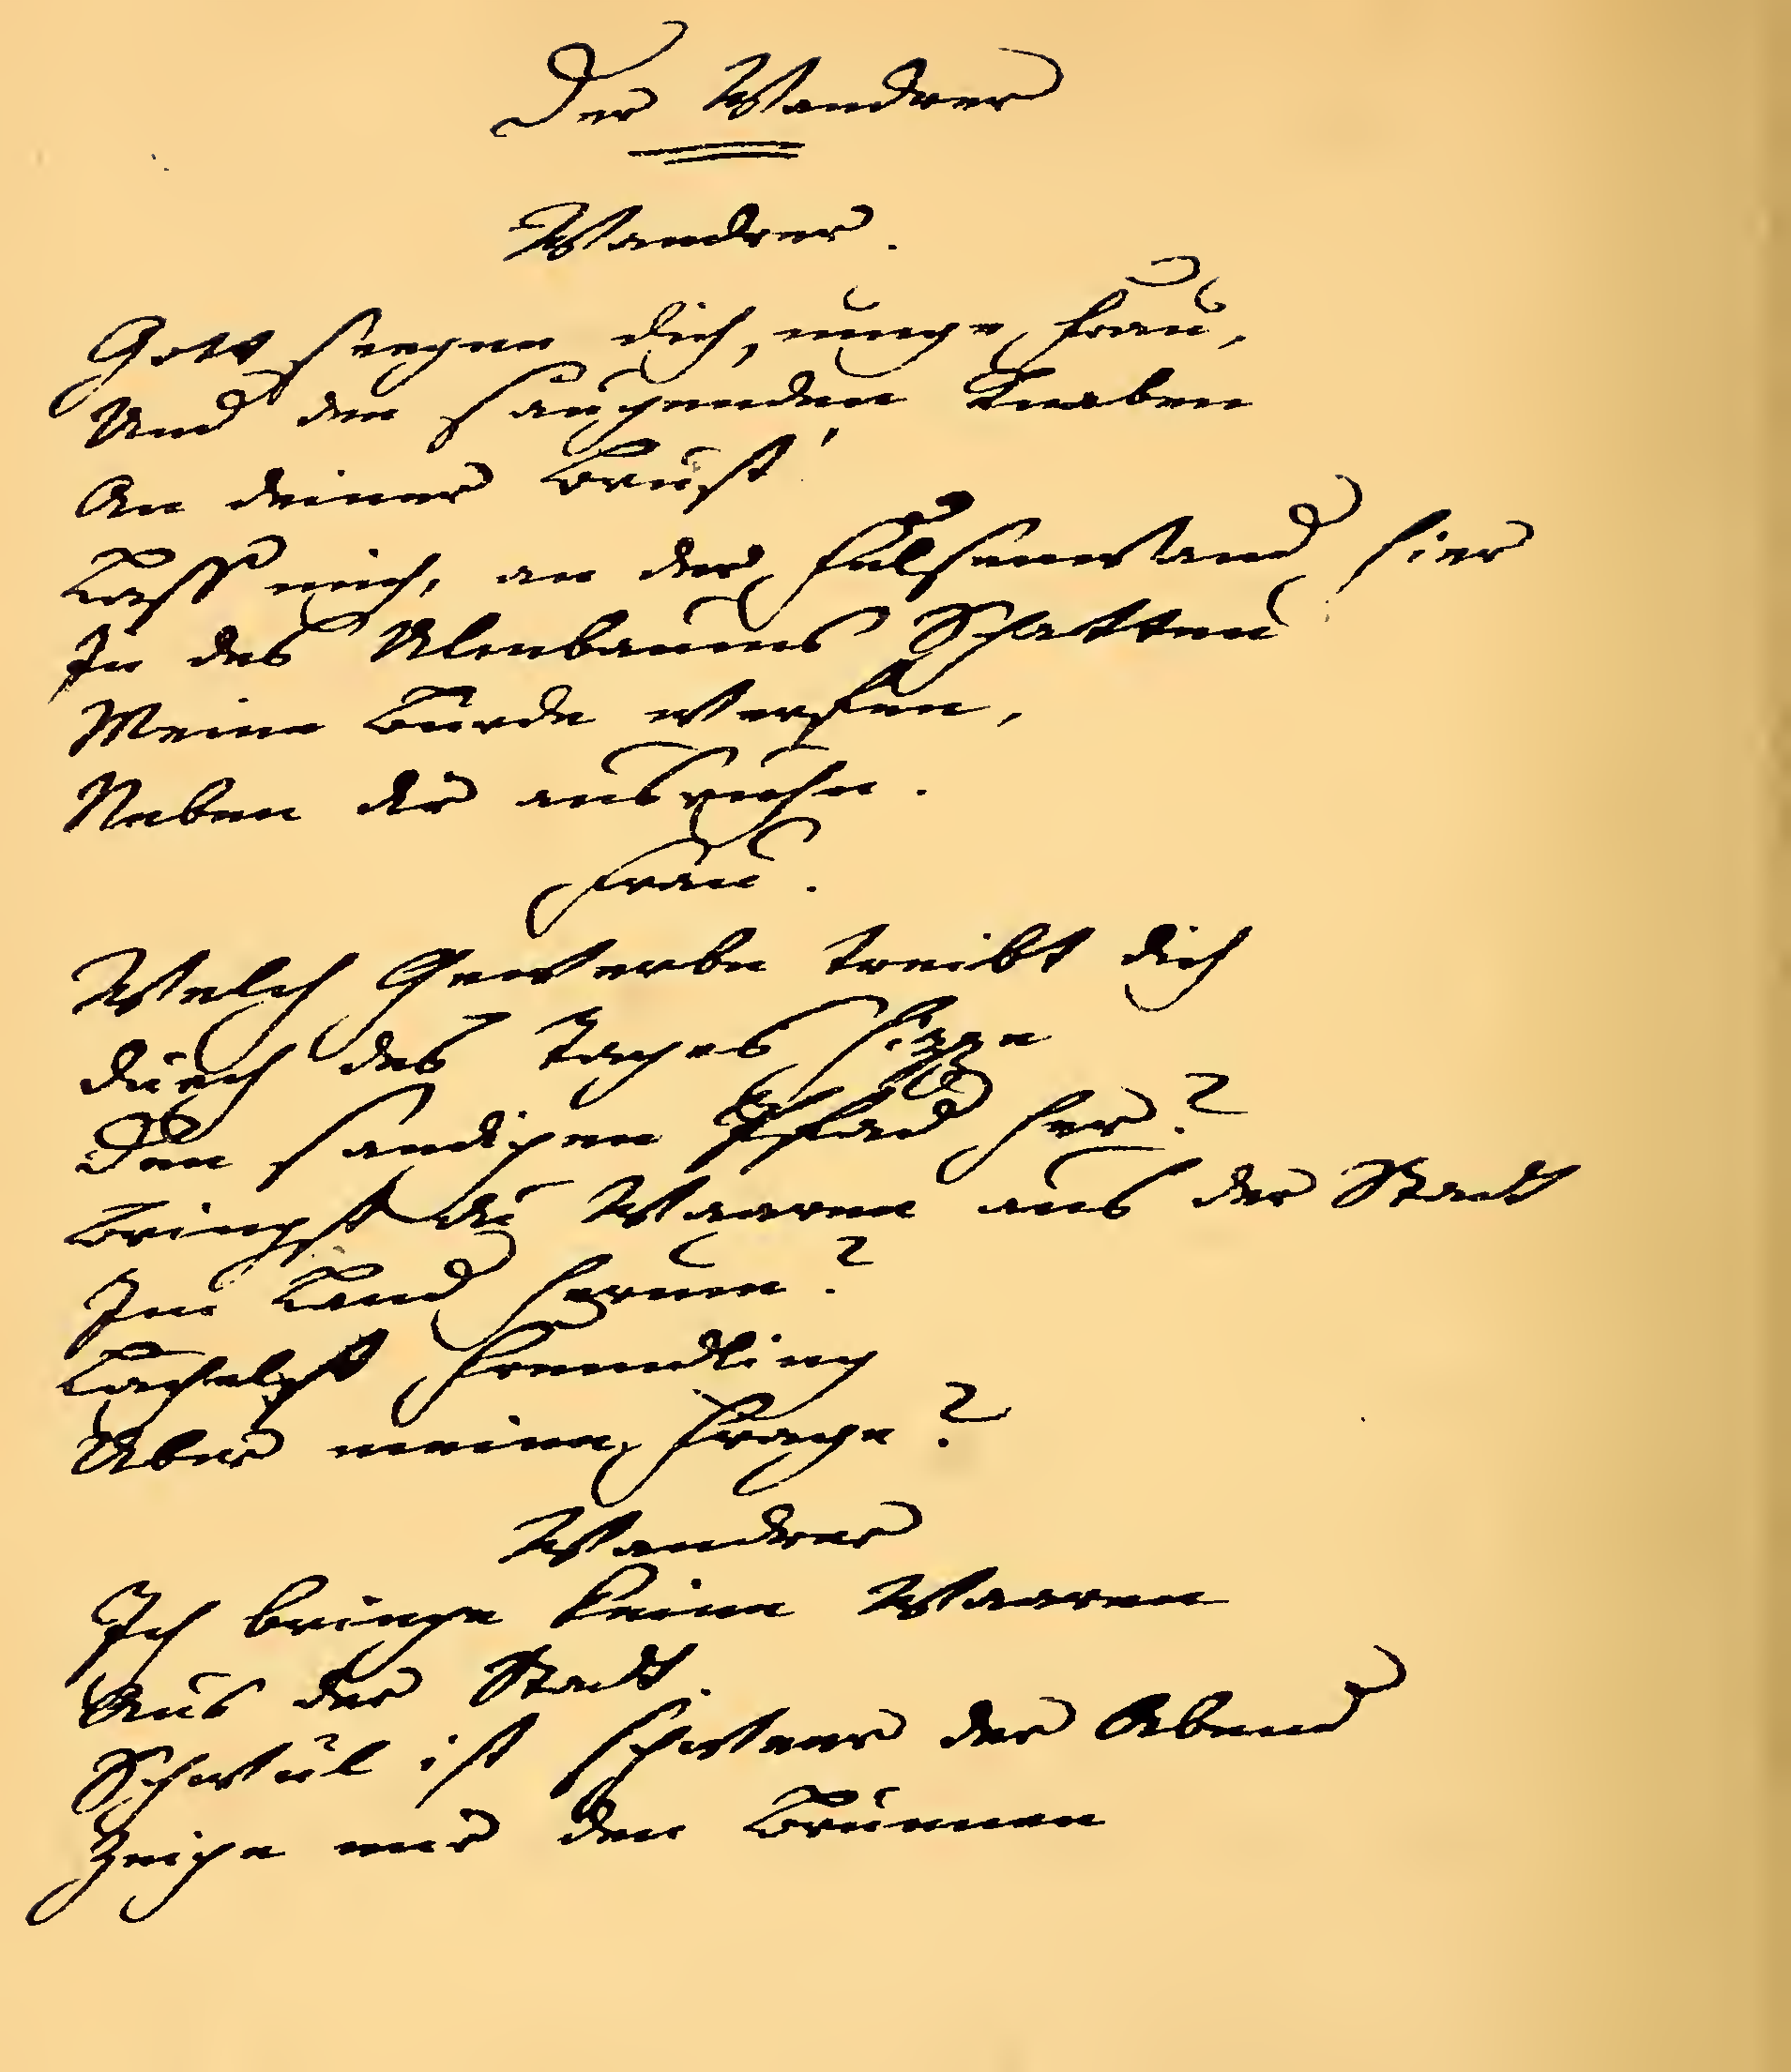 Der Wandrer
Wandrer.
Gott seegne dich, iunge Frau,
Und den saugenden Knaben
An deiner Brust!
Lass mich, an der Felsenwand hier
In des Ulmbaums Schatten
Meine Burde werfen,
Neben dir ausruhn.
Frau.
Welch Gewerbe treibt dich
durch des Tages Hizze
Den sandigen Pfad her?
Bringst du Waaren aus der Stadt
Im Land herum?
Lächelst Fremdling
Uber meine Frage?
Wandrer
Ich bringe keine Waaren
Aus der Stadt.
Schwül ist schweer der Abend
Zeige mir den Brunnen